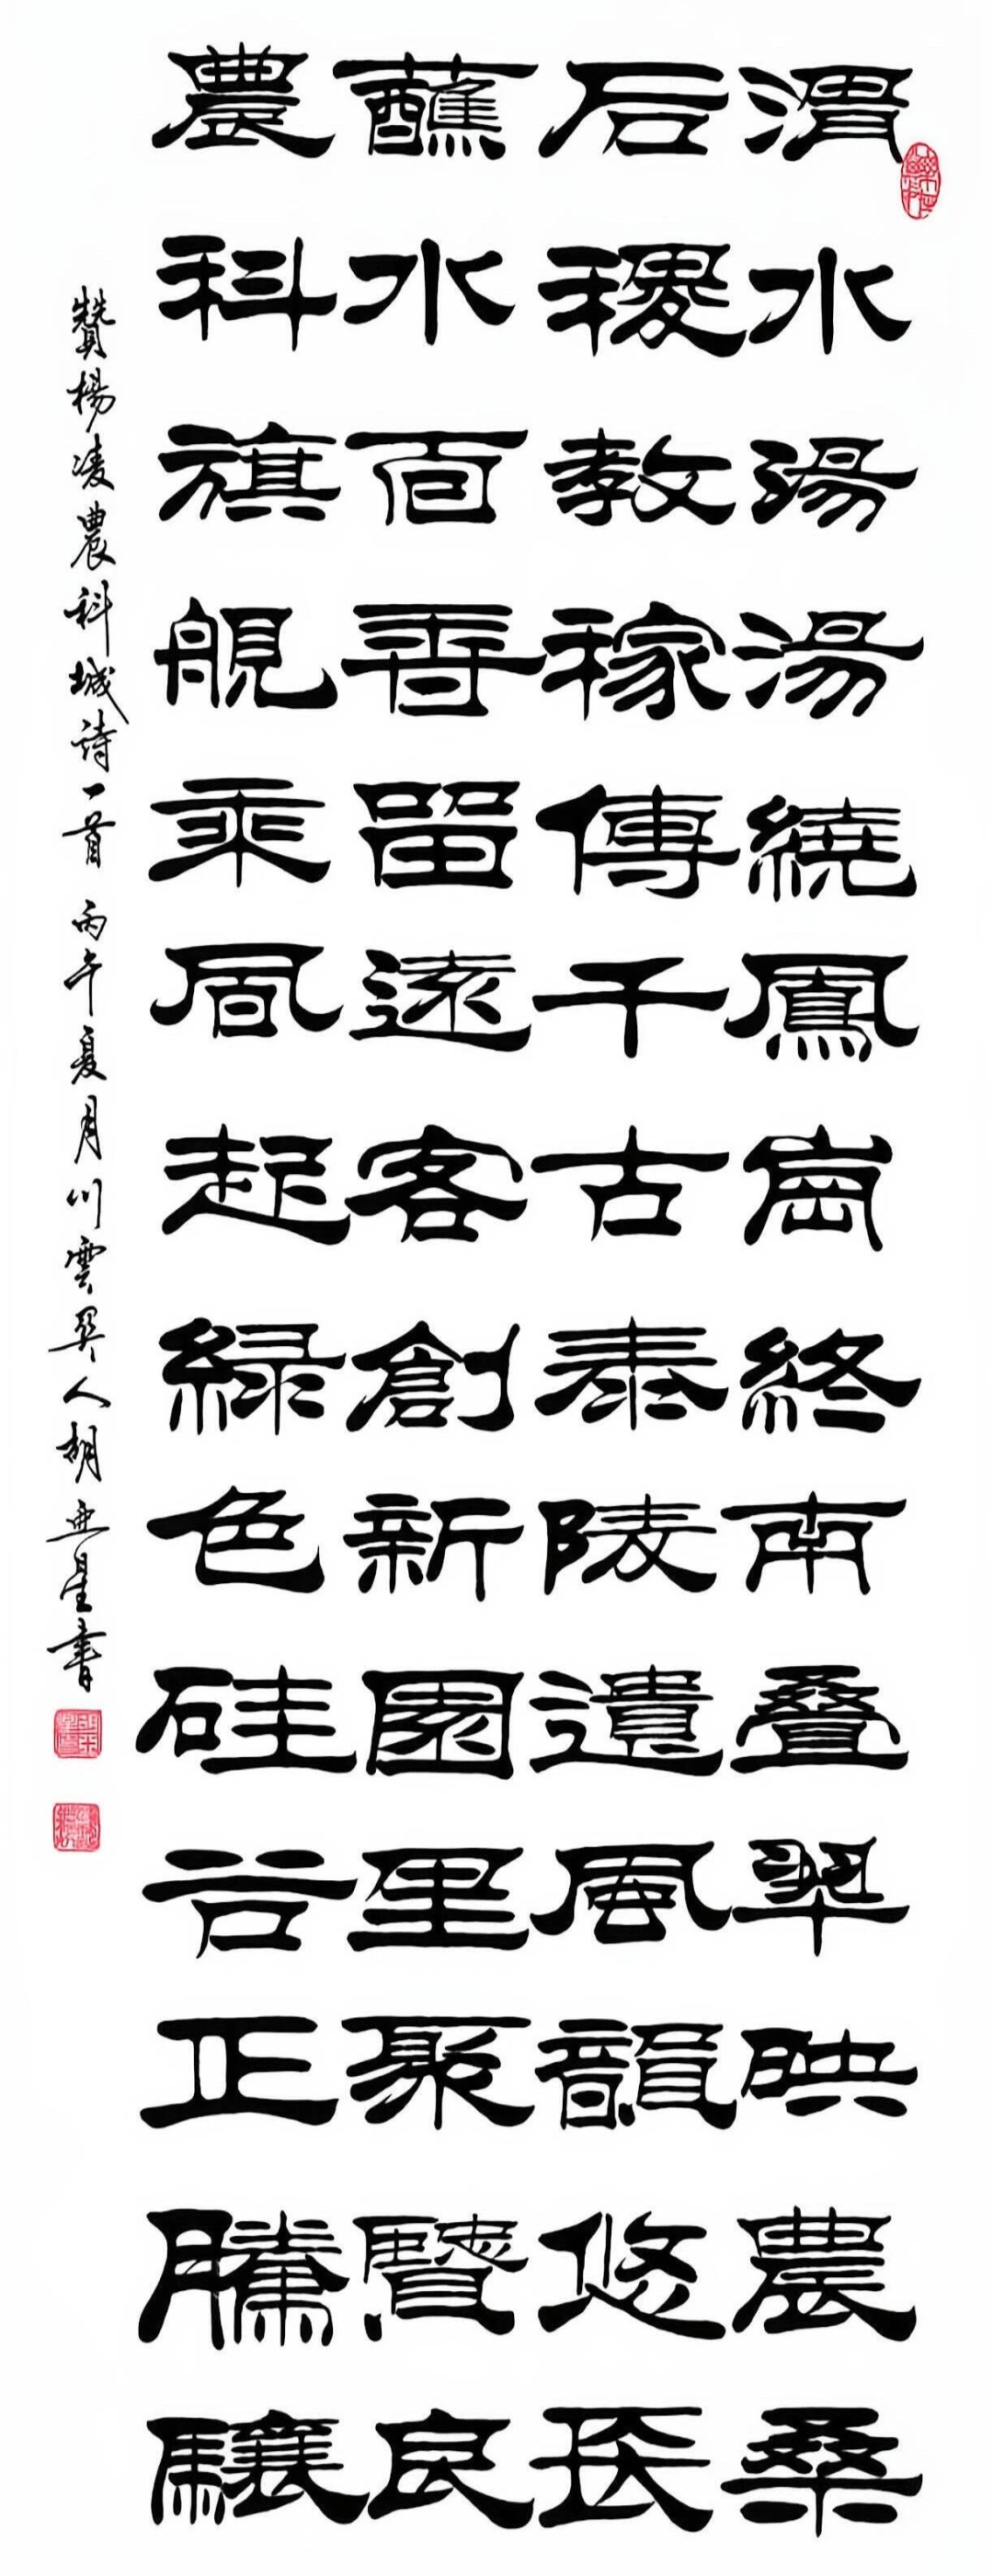 渭水湯湯繞鳳崗終南叠翠映農桑
后稷教稼傳千古泰陵遺風韻悠長
蘸水面香留遠客創新園里聚賢良
農科旗舰乘風起緑色硅谷正騰驤
贊楊凌農科城詩一首 丙午夏月川雲人胡亞星書